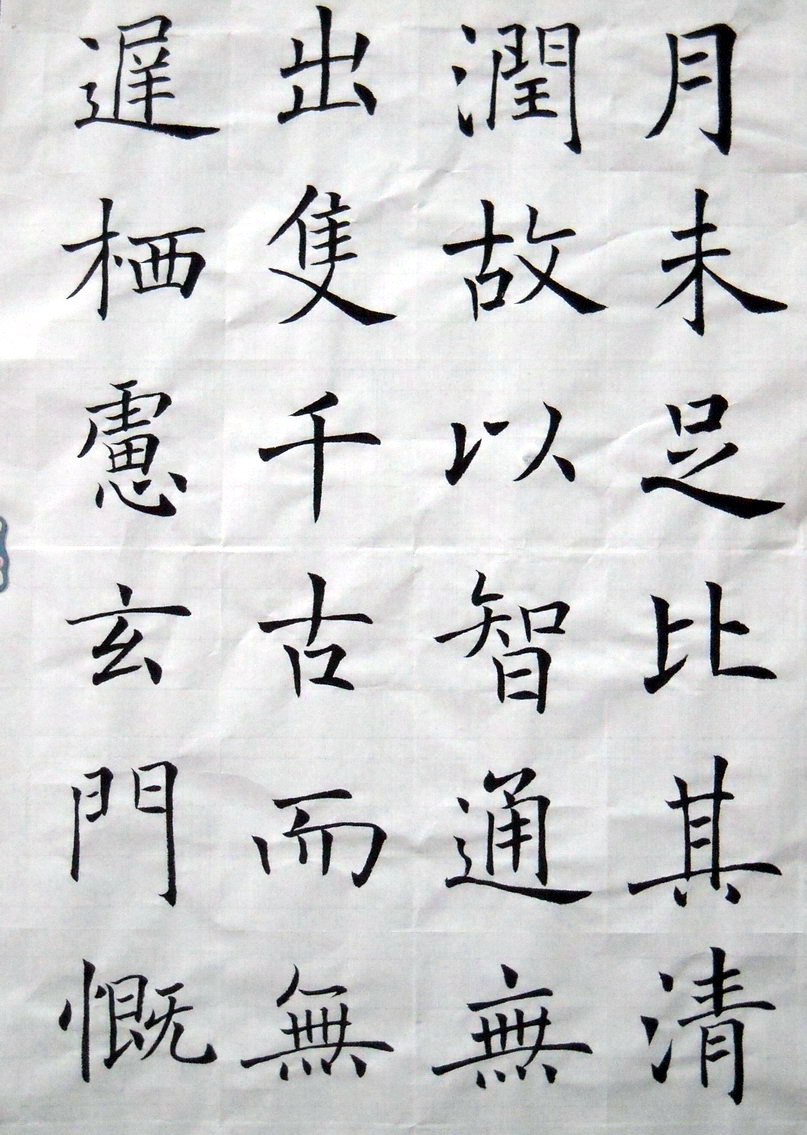 月未足比其清
潤故以智通無
出隻千古而無
遅栖慮玄門慨